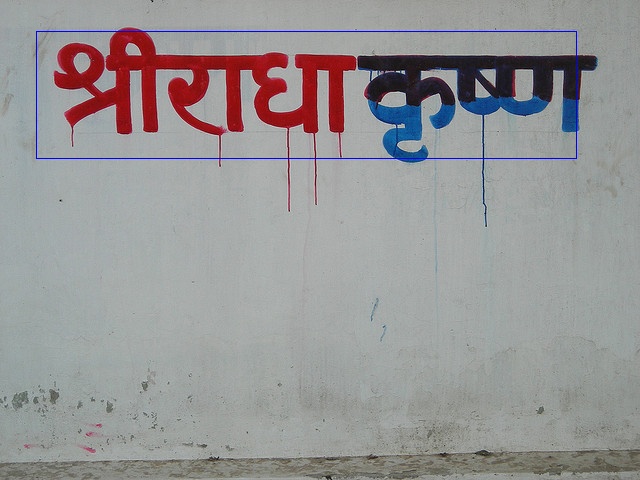 श्रीराधाकृष्ण